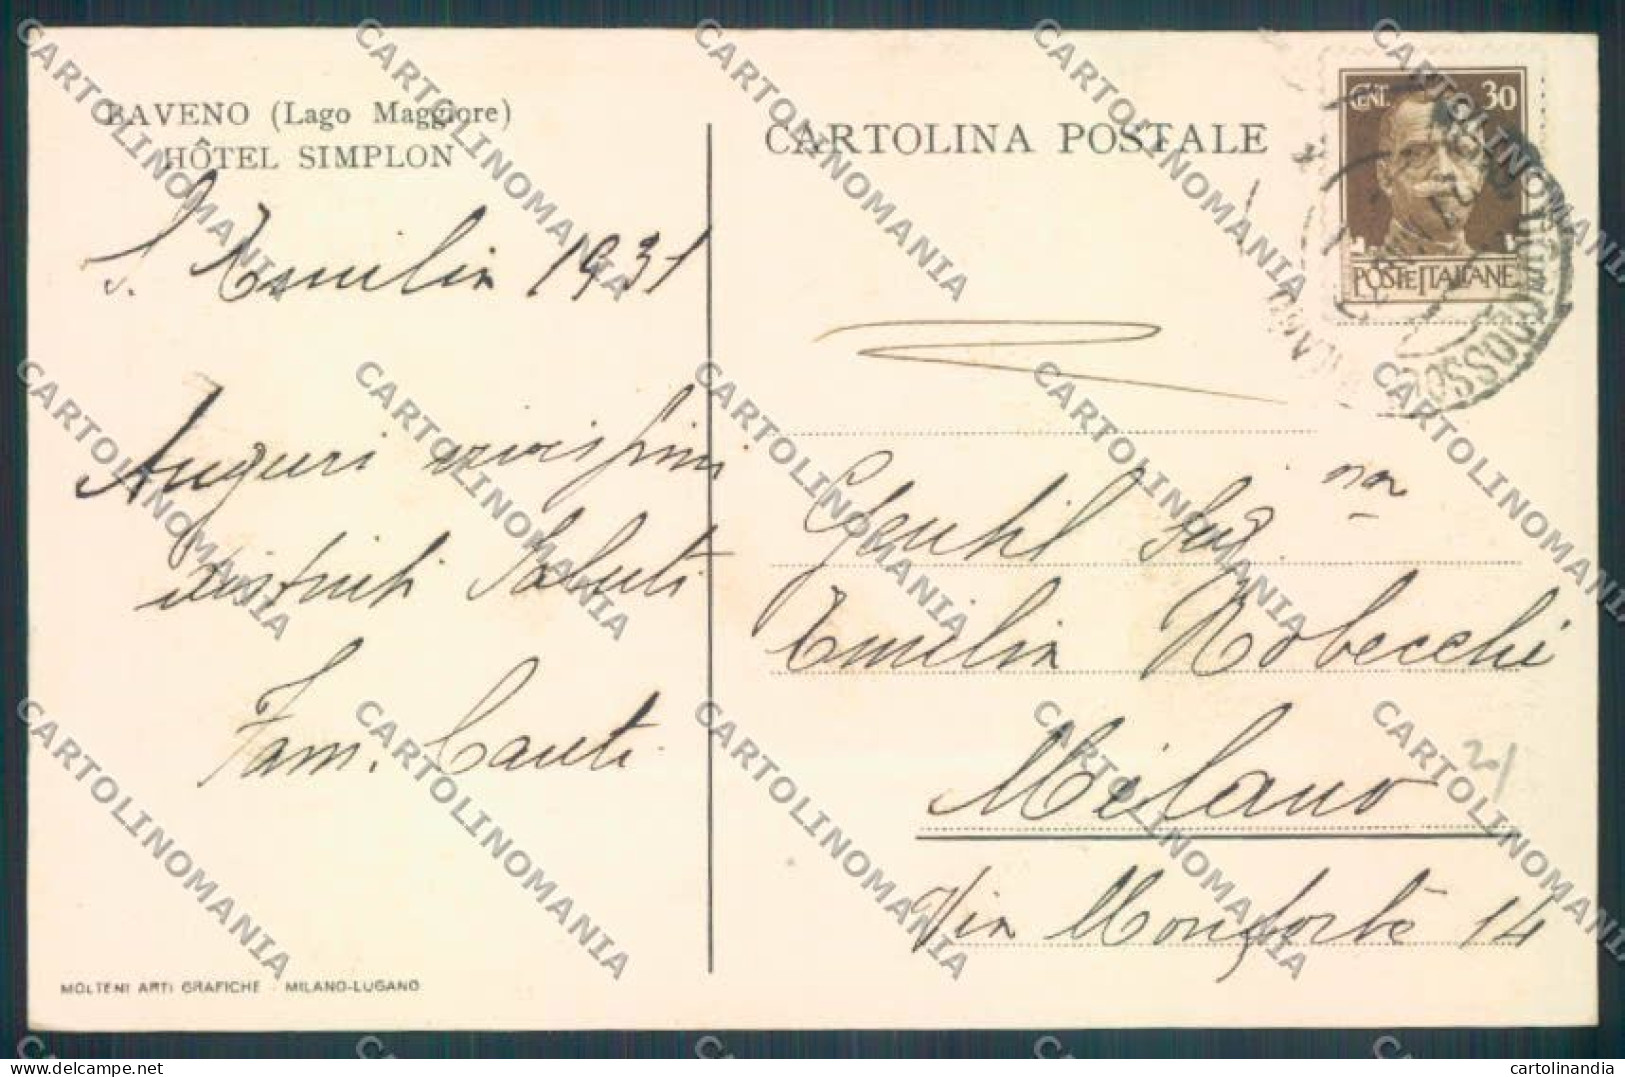 BAVENO (Lago Maggiore)
HÔTEL SIMPLON
S. Emilia 1931
Auguri vivissimi
distinti Saluti
Fam. Canti
MOLTENI ARTI GRAFICHE - MILANO-LUGANO
CARTOLINA POSTALE
CENT. 30
POSTE ITALIANE
MILANO
DOMODOSSOLA
Gentil Sig.na
Emilia Robecchi
Milano
20/
Via Monforte 14
CARTOLINOMANIA
cartolinandia